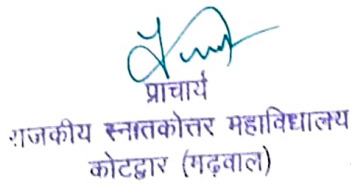 प्राचार्य
राजकीय स्नातकोत्तर महाविद्यालय
कोटद्वार (गढ़वाल)